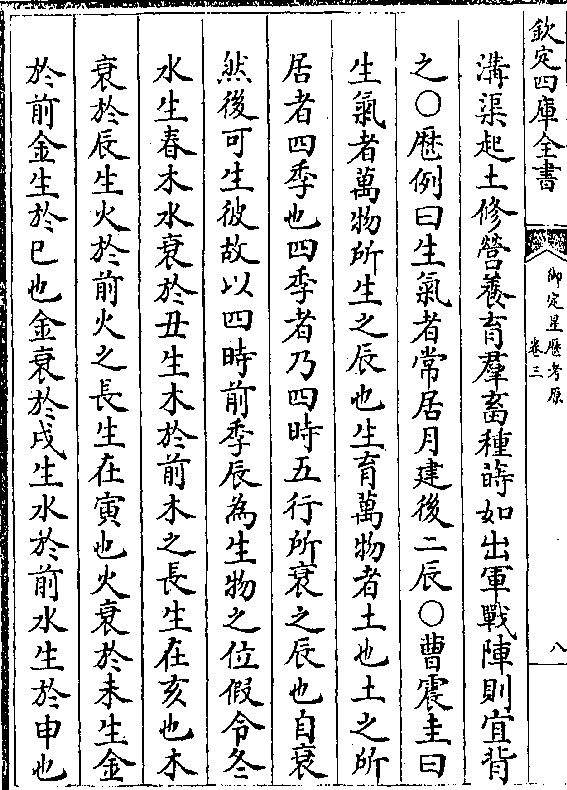 欽定四庫全書
御定星歷考原
卷三
八
溝渠起土修營養育羣畜種蒔如出軍戰陣則宜背
之○歷例曰生氣者常居月建後二辰○曹震圭曰
生氣者萬物所生之辰也生育萬物者土也土之所
居者四季也四季者乃四時五行所衰之辰也自衰
然後可生彼故以四時前季辰為生物之位假令冬
水生春木水衰於丑生木於前木之長生在亥也木
衰於辰生火於前火之長生在寅也火衰於未生金
於前金生於巳也金衰於戌生水於前水生於申也